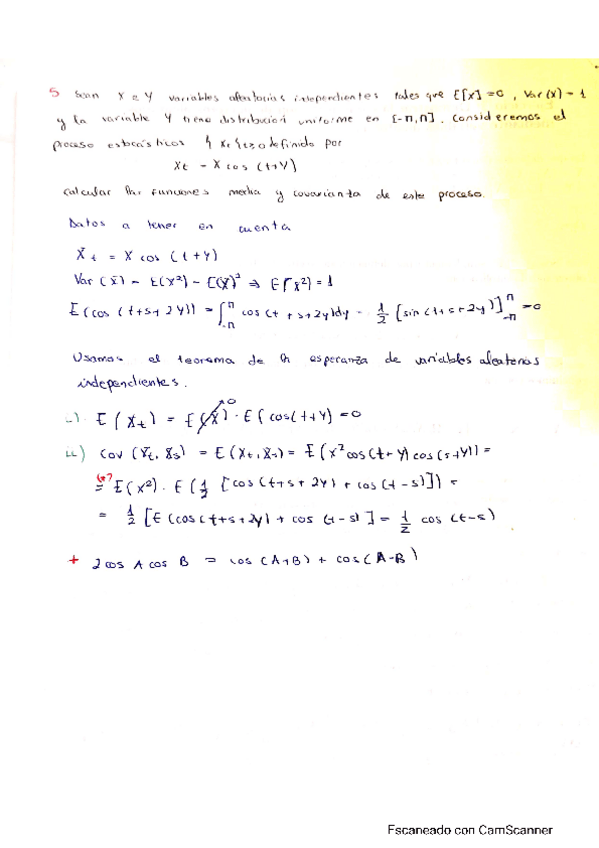 5 Sean X e Y variables aleatorias independientes tales que E[X]=0, Var(X)=1
y la variable Y tiene distribución uniforme en [-π,π]. Consideremos el
proceso estocástico {Xt}t≥0 definido por
Xt = X cos (t+Y)
calcular las funciones media y covarianza de este proceso.
Datos a tener en cuenta
Xt = X cos (t+Y)
Var (X) = E(X²) - E(X)² ⇒ E(X²) = 1
E(cos (t+s+2Y)) = ∫_{-π}^{π} cos(t+s+2y)dy = 1/2 [sin(t+s+2y)]_{-π}^{π} = 0
Usamos el teorema de la esperanza de variables aleatorias
independientes.
i) E(Xt) = E(X)→0 · E(cos(t+Y) = 0
ii) Cov (Xt, Xs) = E(Xt, Xs) = E(X² cos(t+Y) cos(s+Y)) =
= E(X²) · E(1/2 [cos(t+s+2Y) + cos(t-s)]) =
= 1/2 [E(cos(t+s+2Y) + cos(t-s)] = 1/2 cos (t-s)
+ 2cos A cos B = cos(A+B) + cos(A-B)
Escaneado con CamScanner